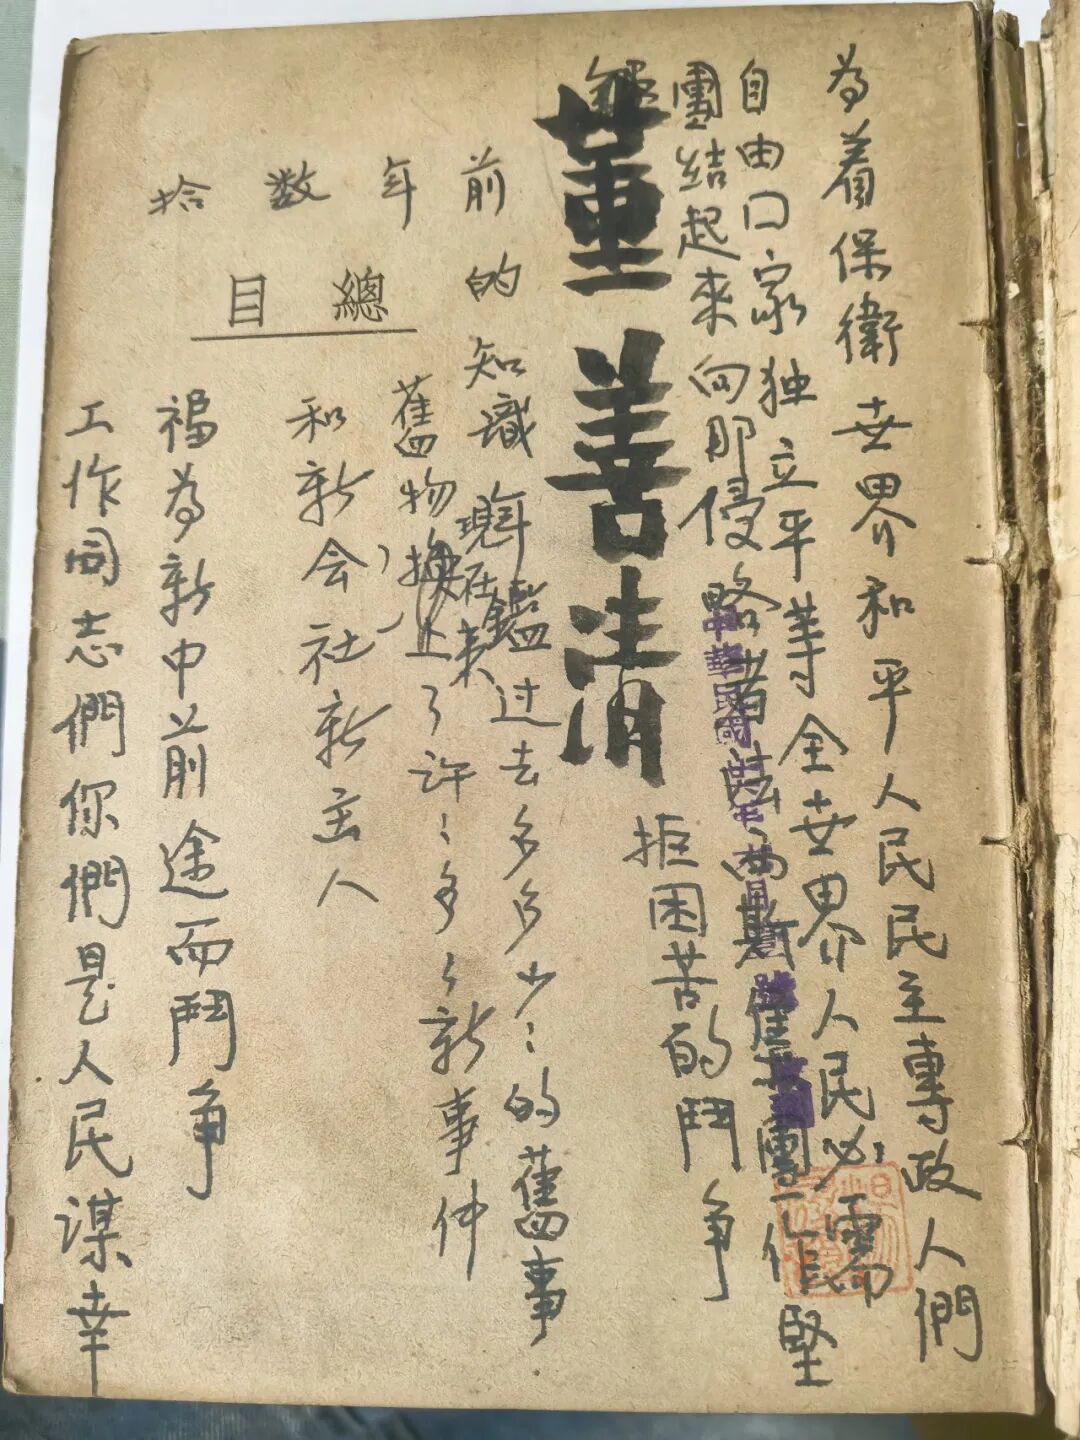 為着保衛世界和平人民民主專政人們
自由口家独立平等全世界人民必需
團結起來向那侵略者 集團作堅
拒困苦的鬥争
董善清
前的知識年鑑过去多多少少:的舊事
現在来
舊物换上了許:多多新事件
和新会社新主人
拾数年
總目
福為新中前途而鬥争
工作同志們你們是人民谋幸